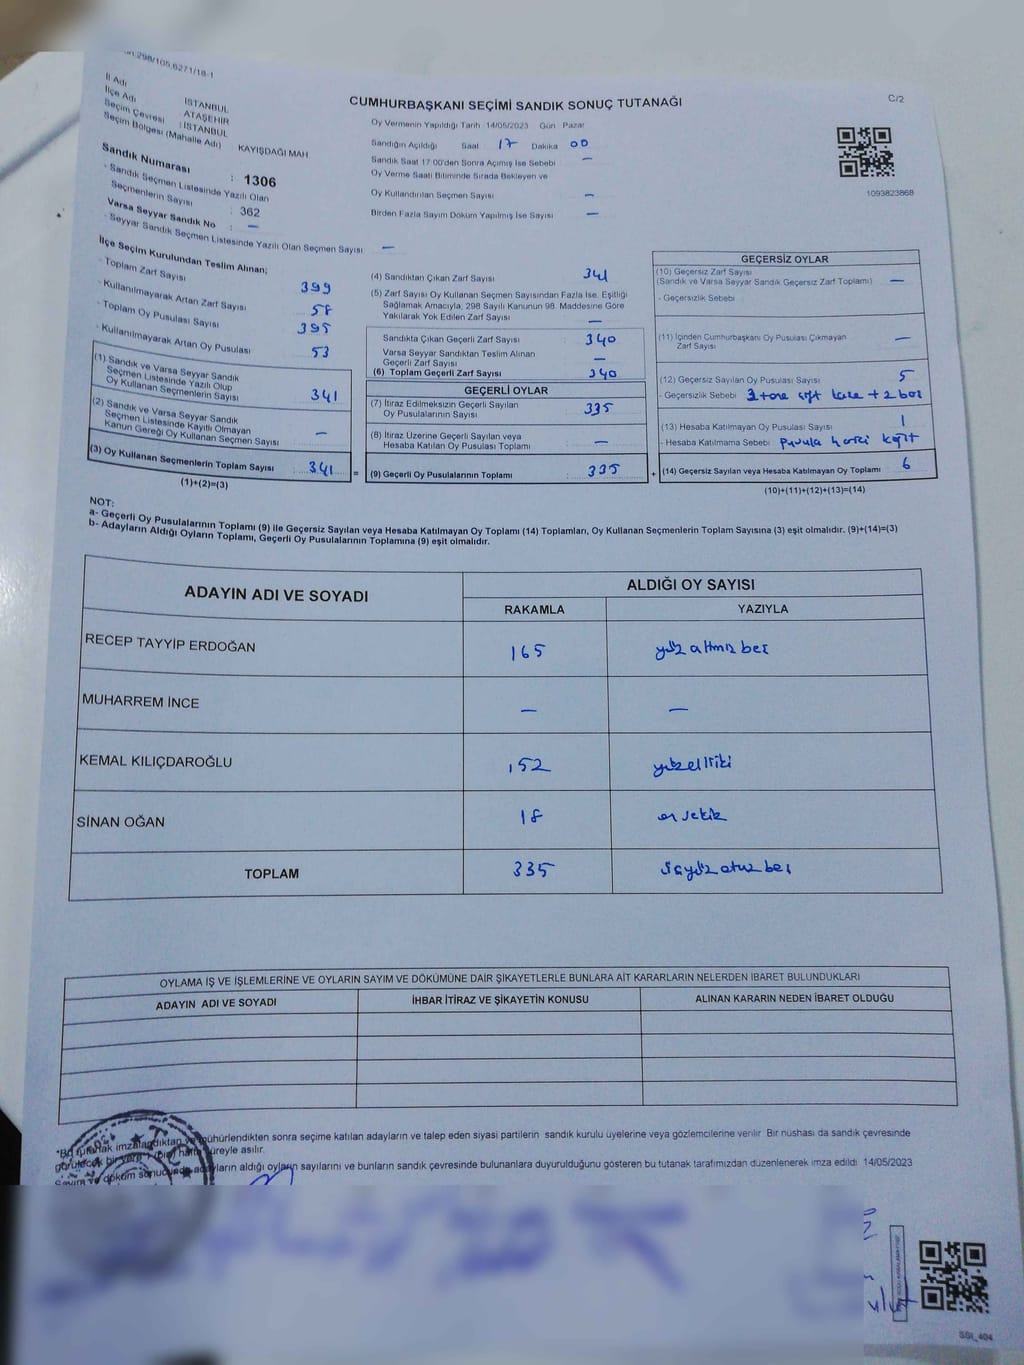 298/105.6271/18-1
CUMHURBAŞKANI SEÇİMİ SANDIK SONUÇ TUTANAĞI
C/2
İl Adı : İSTANBUL
İlçe Adı : ATAŞEHİR
Seçim Çevresi : İSTANBUL
Seçim Bölgesi (Mahalle Adı) : KAYIŞDAĞI MAH.
Sandık Numarası : 1306
- Sandık Seçmen Listesinde Yazılı Olan
Seçmenlerin Sayısı : 362
Varsa Seyyar Sandık No : —
- Seyyar Sandık Seçmen Listesinde Yazılı Olan Seçmen Sayısı —
Oy Vermenin Yapıldığı Tarih 14/05/2023 Gün Pazar
Sandığın Açıldığı Saat 17 Dakika 00
Sandık Saat 17.00'den Sonra Açımış İse Sebebi —
Oy Verme Saati Bitiminde Sırada Bekleyen ve
Oy Kullandırılan Seçmen Sayısı —
Birden Fazla Sayım Döküm Yapılmış İse Sayısı —
1093823868
İlçe Seçim Kurulundan Teslim Alınan;
- Toplam Zarf Sayısı 399
- Kullanılmayarak Artan Zarf Sayısı 58
- Toplam Oy Pusulası Sayısı 395
- Kullanılmayarak Artan Oy Pusulası 53
(1) Sandık ve Varsa Seyyar Sandık
Seçmen Listesinde Yazılı Olup
Oy Kullanan Seçmenlerin Sayısı 341
(2) Sandık ve Varsa Seyyar Sandık
Seçmen Listesinde Kayıtlı Olmayan
Kanun Gereği Oy Kullanan Seçmen Sayısı —
(3) Oy Kullanan Seçmenlerin Toplam Sayısı 341
(1)+(2)=(3)
=
(4) Sandıktan Çıkan Zarf Sayısı 341
(5) Zarf Sayısı Oy Kullanan Seçmen Sayısından Fazla İse, Eşitliği
Sağlamak Amacıyla, 298 Sayılı Kanunun 98. Maddesine Göre
Yakılarak Yok Edilen Zarf Sayısı —
Sandıkta Çıkan Geçerli Zarf Sayısı : 340
Varsa Seyyar Sandıktan Teslim Alınan
Geçerli Zarf Sayısı —
(6) Toplam Geçerli Zarf Sayısı : 340
GEÇERLİ OYLAR
(7) İtiraz Edilmeksizin Geçerli Sayılan
Oy Pusulalarının Sayısı : 335
(8) İtiraz Üzerine Geçerli Sayılan veya
Hesaba Katılan Oy Pusulası Toplamı : —
(9) Geçerli Oy Pusulalarının Toplamı : 335
+
GEÇERSİZ OYLAR
(10) Geçersiz Zarf Sayısı
(Sandık ve Varsa Seyyar Sandık Geçersiz Zarf Toplamı) —
- Geçersizlik Sebebi
(11) İçinden Cumhurbaşkanı Oy Pusulası Çıkmayan
Zarf Sayısı —
(12) Geçersiz Sayılan Oy Pusulası Sayısı 5
- Geçersizlik Sebebi 3 tane çift kaşe + 2 boş
(13) Hesaba Katılmayan Oy Pusulası Sayısı 1
- Hesaba Katılmama Sebebi pusula harici kağıt
(14) Geçersiz Sayılan veya Hesaba Katılmayan Oy Toplamı 6
(10)+(11)+(12)+(13)=(14)
NOT:
a- Geçerli Oy Pusulalarının Toplamı (9) ile Geçersiz Sayılan veya Hesaba Katılmayan Oy Toplamı (14) Toplamları, Oy Kullanan Seçmenlerin Toplam Sayısına (3) eşit olmalıdır. (9)+(14)=(3)
b- Adayların Aldığı Oyların Toplamı, Geçerli Oy Pusulalarının Toplamına (9) eşit olmalıdır.
ADAYIN ADI VE SOYADI
ALDIĞI OY SAYISI
RAKAMLA YAZIYLA
RECEP TAYYİP ERDOĞAN 165 yüz altmış beş
MUHARREM İNCE — —
KEMAL KILIÇDAROĞLU 152 yüzelliiki
SİNAN OĞAN 18 on sekiz
TOPLAM 335 üçyüz otuz beş
OYLAMA İŞ VE İŞLEMLERİNE VE OYLARIN SAYIM VE DÖKÜMÜNE DAİR ŞİKAYETLERLE BUNLARA AİT KARARLARIN NELERDEN İBARET BULUNDUKLARI
ADAYIN ADI VE SOYADI İHBAR İTİRAZ VE ŞİKAYETİN KONUSU ALINAN KARARIN NEDEN İBARET OLDUĞU
*Bu tutanak imzalandıktan ve mühürlendikten sonra seçime katılan adayların ve talep eden siyasi partilerin sandık kurulu üyelerine veya gözlemcilerine verilir. Bir nüshası da sandık çevresinde
görülecek bir yere 1 (bir) hafta süreyle asılır.
Sayım ve döküm sonucunda adayların aldığı oyların sayılarını ve bunların sandık çevresinde bulunanlara duyurulduğunu gösteren bu tutanak tarafımızdan düzenlenerek imza edildi 14/05/2023
SGI_404